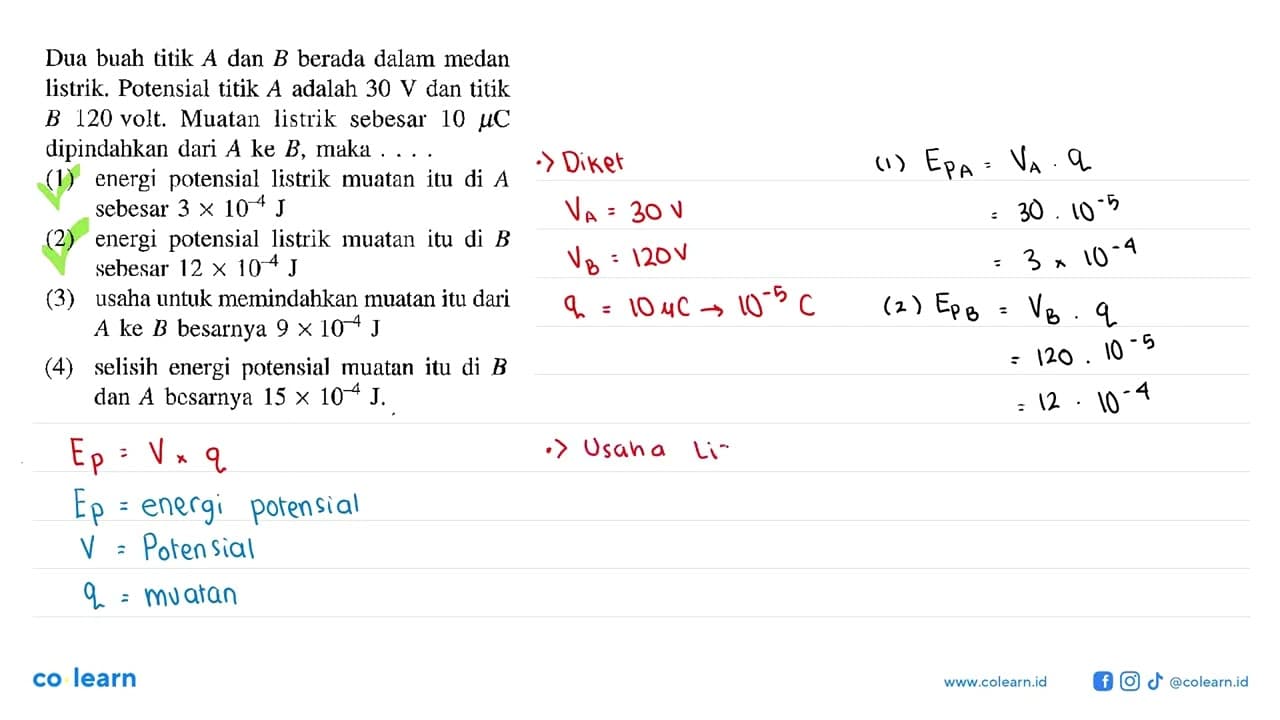 Dua buah titik A dan B berada dalam medan
listrik. Potensial titik A adalah 30 V dan titik
B 120 volt. Muatan listrik sebesar 10 μC
dipindahkan dari A ke B, maka . . . .
(1) energi potensial listrik muatan itu di A
sebesar 3 × 10⁻⁴ J
(2) energi potensial listrik muatan itu di B
sebesar 12 × 10⁻⁴ J
(3) usaha untuk memindahkan muatan itu dari
A ke B besarnya 9 × 10⁻⁴ J
(4) selisih energi potensial muatan itu di B
dan A besarnya 15 × 10⁻⁴ J.
Ep = V × q
Ep = energi potensial
V = Potensial
q = muatan
•> Diket
V_A = 30 V
V_B = 120 V
q = 10 μC → 10⁻⁵ C
•> Usaha Li
(1) E_PA = V_A . q
= 30 . 10⁻⁵
= 3 × 10⁻⁴
(2) E_PB = V_B . q
= 120 . 10⁻⁵
= 12 . 10⁻⁴
co learn
www.colearn.id
@colearn.id